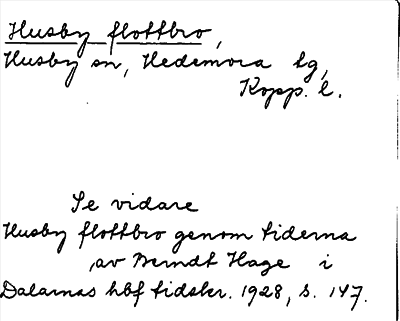 Husby flottbro,
Husby sn, Hedemora tg,
Kopp. l.
Se vidare
Husby flottbro genom tiderna
, av Berndt Hage i
Dalarnas hbf tidskr. 1928, s. 147.